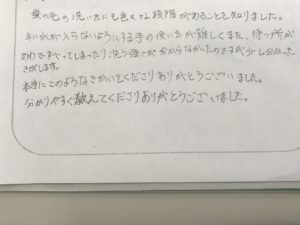 髪の毛の洗い方にも色々な段階があることを知りました。
耳に水が入らないようにする手の使い方が難しくまた、待つ所が
めわですべってしまったり、洗う強さが分からなかったのですが少し分かった
きがします。
本当にこのようなきかいをくださりありがとうございました。
分かりやすく教えてくださりありがとうございました。